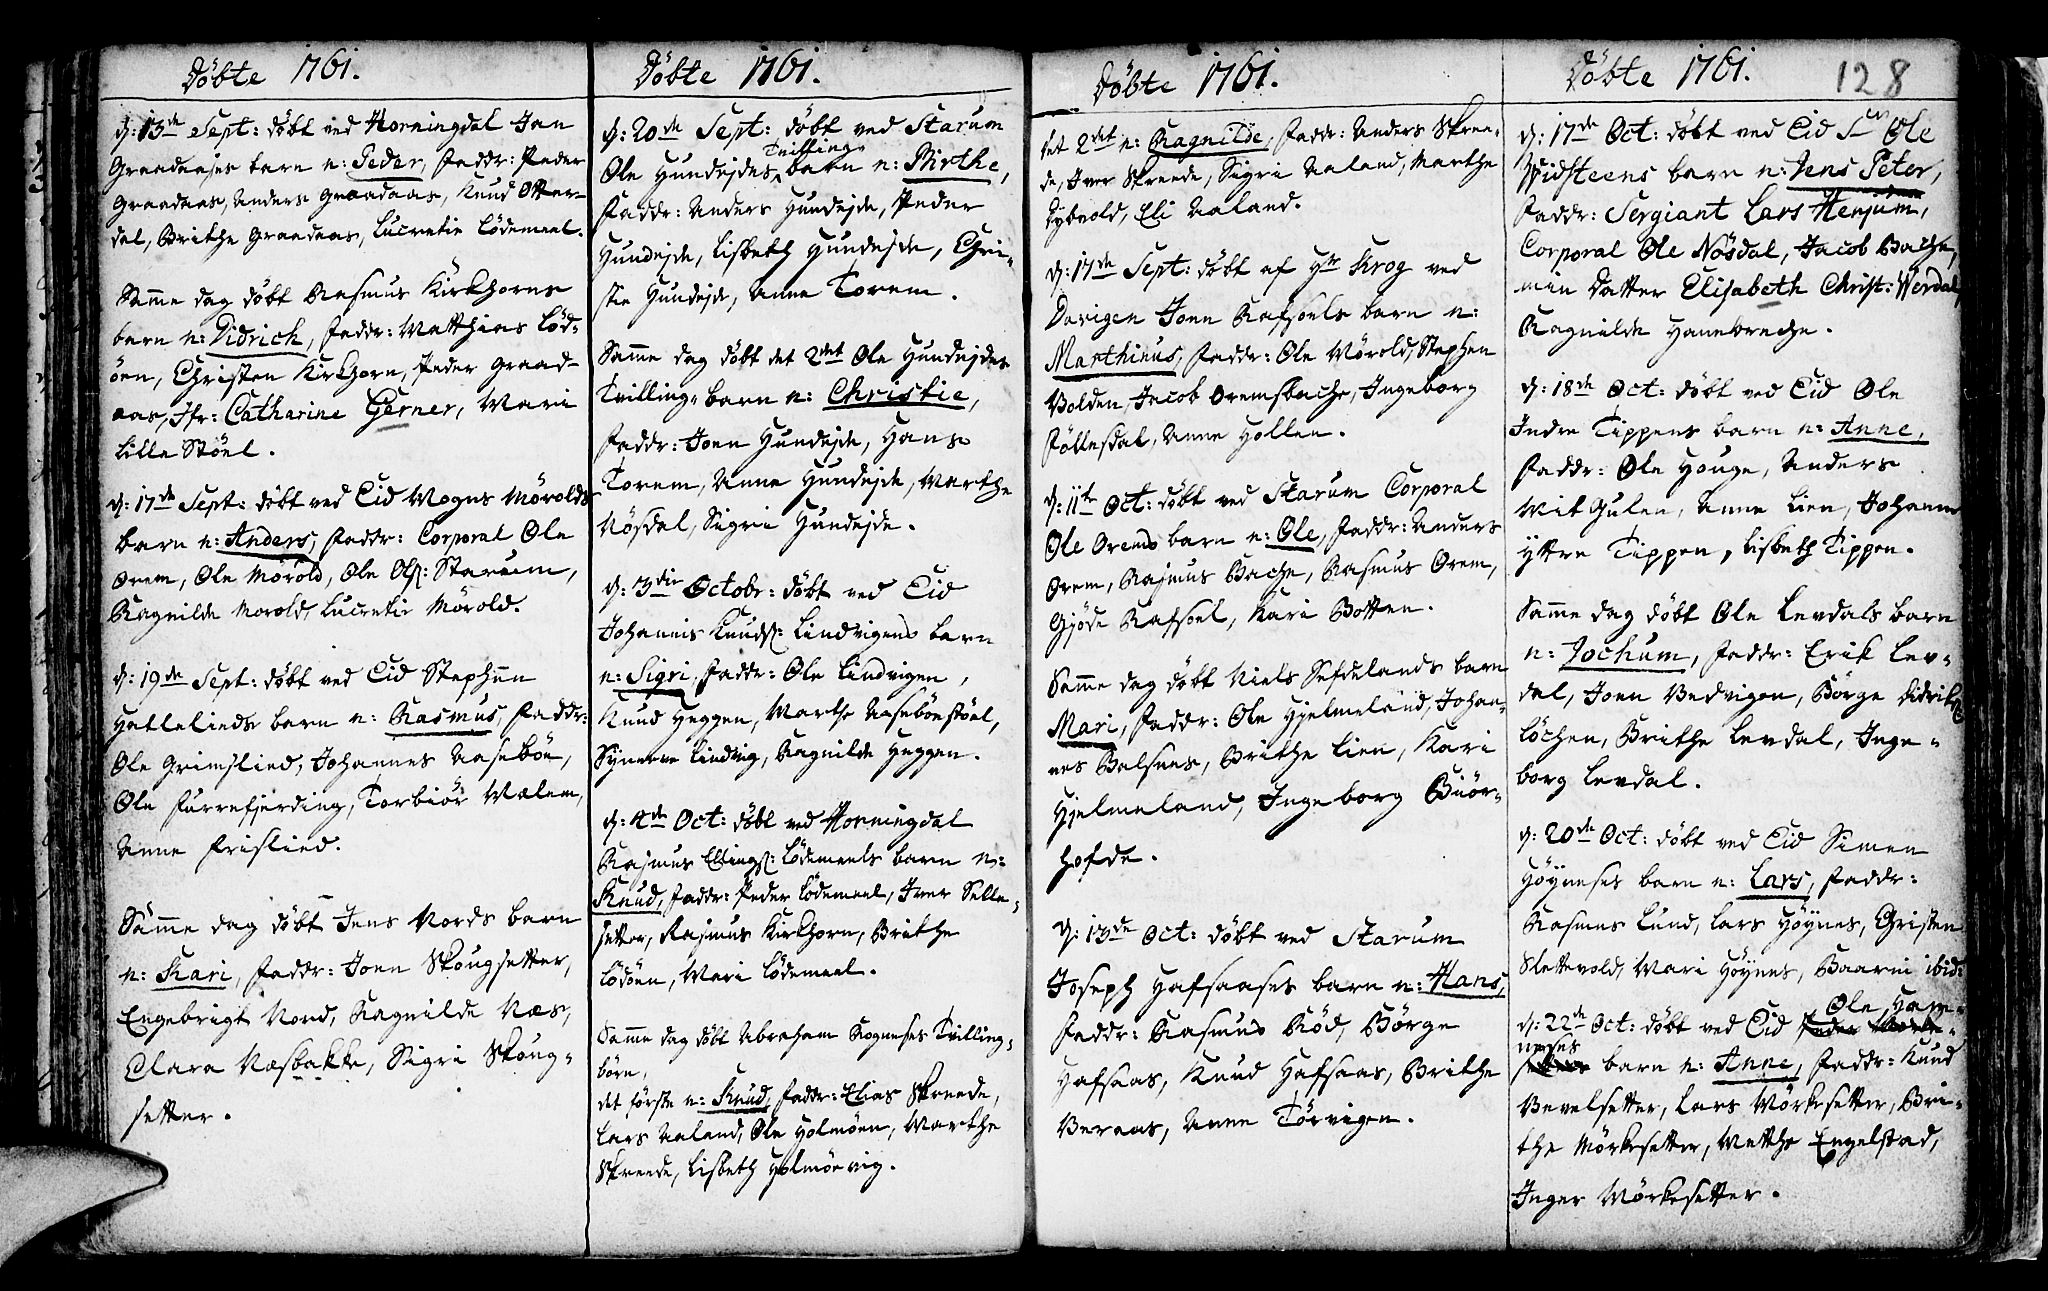 Döbte 1761.
d: 13de Sept: döbt ved Horningdal Jan
Graadaases barn n: Peder, Faddr: Peder
Graadaas, Anders Graadaas, Knud Otter-
dal, Brithe Graadaas, Lucretie Lödemeel.
Samme dag döbt Rasmus Kirkhorns
barn n: Didrich, Faddr: Matthias Löd-
öen, Christen Kirkhorn, Peder Graad-
aas, Jfr: Catharine Gerner, Mari
Lille Stöel.
d: 17de Sept: döbt ved Eid Mogns Mörolds
barn n: Anders, Faddr: Corporal Ole
Orem, Ole Mörold, Ole Ols: Starum,
Ragnilde Morold, Lucretie Mörold.
d: 19de Sept: döbt ved Eid Stephen
Hattelieds barn n: Rasmus, Faddr:
Ole Grimslied, Johannes Aaseböe,
Ole Furrefjerding, Torbiör Mælem,
Anne Frislied.
Samme dag döbt Jens Nords barn
n: Kari, Faddr: Joen Skougsetter,
Engebrigt Nord, Ragnilde Næs,
Clara Næsbakke, Sigri Skoug-
setter.
Döbte 1761.
d: 20de Sept: döbt ved Starum
Tvilling
Ole Hundejdes barn n: Birthe,
Faddr: Anders Hundejde, Peder
Hundejde, Lisbeth Hundejde, Chri-
stie Hundejde, Anne Torem.
Samme dag döbt det 2det Ole Hundejdes
Tvilling-barn n: Christie,
Faddr: Joen Hundejde, Hans
Torem, Anne Hundejde, Marthe
Nösdal, Sigri Hundejde.
d: 3die Octobr: döbt ved Eid
Johannis Knuds: Lindvigens barn
n: Sigri, Faddr: Ole Lindvigen,
Knud Heggen, Marthe Aasebönstöel,
Synneve Lindvig, Ragnilde Heggen.
d: 4de Oct: döbt ved Horningdal
Rasmus Ellings: Lödemeels barn n:
Knud, Faddr: Peder Lödemeel, Iver Selle-
setter, Rasmus Kirkhorn, Brithe
Lödöen, Mari Lödemeel.
Samme dag döbt Abraham Rogneses Tvilling-
börn,
det förste n: Knud, Faddr: Elias Skreede,
Lars Aaland, Ole Holmöen, Marthe
Skreede, Lisbeth Holmöevig.
Döbte 1761.
det 2det n: Ragnilde, Faddr: Anders Skree-
de, Iver Skreede, Sigri Aaland, Marthe
Dybvold, Eli Aaland.
d: 17de Sept: döbt af Hr Krog ved
Davigen Joen Rafsoels barn n:
Marthinus, Faddr: Ole Mörold, Stephen
Volden, Jacob Oremsbache, Ingeborg
Föllesdal, Anne Hollen.
d: 11te Oct: döbt ved Starum Corporal
Ole Orems barn n: Ole, Faddr: Anders
Orem, Rasmus Bache, Rasmus Orem,
Gjöde Rafsoel, Kari Botten.
Samme dag döbt Niels Sefdelands barn
Mari, Faddr: Ole Hjelmeland, Johan-
nes Balsnes, Brithe Lien, Kari
Hjelmeland, Ingeborg Buör-
hofde.
d: 13de Oct: döbt ved Starum
Joseph Hafsaases barn n: Hans,
Faddr: Rasmus Röd, Börge
Hafsaas, Knud Hafsaas, Brithe
Veraas, Anne Törvigen.
Döbte 1761.
128
d: 17de Oct: döbt ved Eid Sr Ole
Widsteens barn n: Jens Peter,
Faddr: Sergiant Lars Henjum,
Corporal Ole Nösdal, Jacob Bache,
min Datter Elisabeth Christ: Werdal,
Ragnilde Hanebreche.
d: 18de Oct: döbt ved Eid Ole
Indre Tippens barn n: Anne,
Faddr: Ole Houge, Anders
MitGulen, Anne Lien, Johanne
yttre Tippen, Lisbeth Tippen.
Samme dag döbt Ole Levdals barn
n: Jochum, Faddr: Erik Lev-
dal, Joen Nedvigen, Börge Didrik
Löchen, Brithe Levdal, Inge-
borg Levdal.
d: 20de Oct: döbt ved Eid Simen
Höyneses barn n: Lars, Faddr:
Rasmus Lund, Lars Höynes, Christen
Slettevold, Mari Höynes, Baarni ibid:
Ole Ham-
d: 22de Oct: döbt ved Eid Peder Mörke-
neses
setters barn n: Anne, Faddr: Knud
Bevelsetter, Lars Mörkesetter, Bri-
the Mörkesetter, Matthe Engelstad,
Inger Mörkesetter.